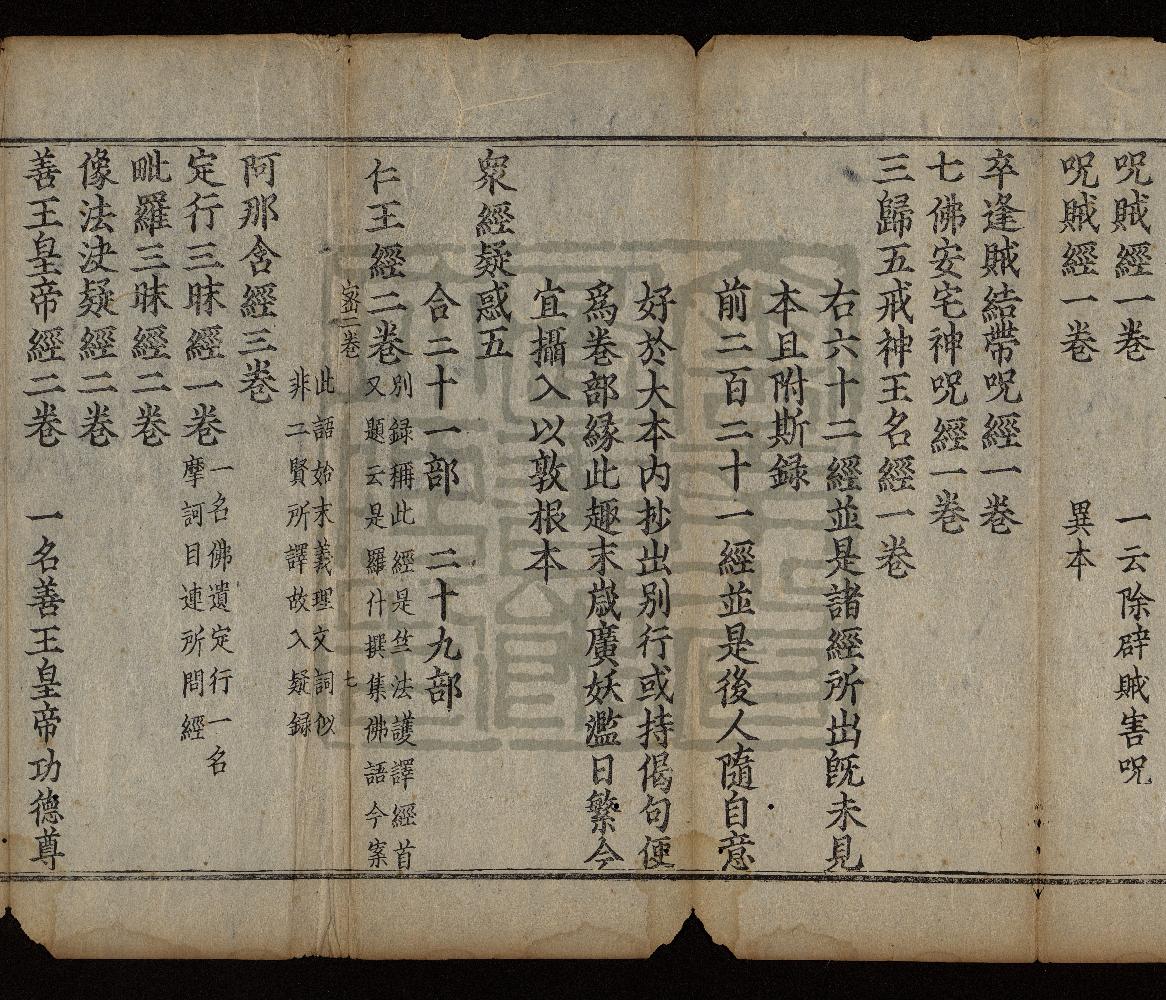 呪賊經一卷　一云除辟賊害呪
呪賊經一卷　異本
卒逢賊結帶呪經一卷
七佛安宅神呪經一卷
三歸五戒神王名經一卷
右六十二經並是諸經所出旣未見
本且附斯録
前二百二十一經並是後人隨自意
好於大本內抄出別行或持偈句便
爲卷部緣此趣末歲廣妖濫日繁今
宜攝入以敦根本
衆經疑惑五
合二十一部　二十九部
仁王經二卷
別録稱此經是竺法護譯經首
又題云是羅什撰集佛語今案
此語始末義理文詞似
非二賢所譯故入疑録
密二卷　七
阿那含經三卷
定行三昧經一卷
一名佛遺定行一名
摩訶目連所問經
毗羅三昧經二卷
像法決疑經二卷
善王皇帝經二卷　一名善王皇帝功德尊